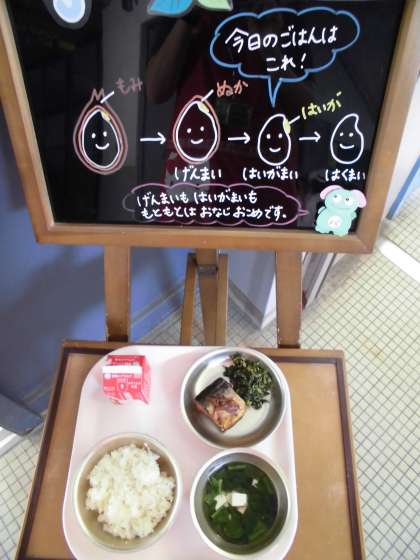 今日のごはんは
これ!
もみ
ぬか
はいが
げんまい
はいがまい
はくまい
げんまいも はいがまいも
もともとは おなじ おこめです。